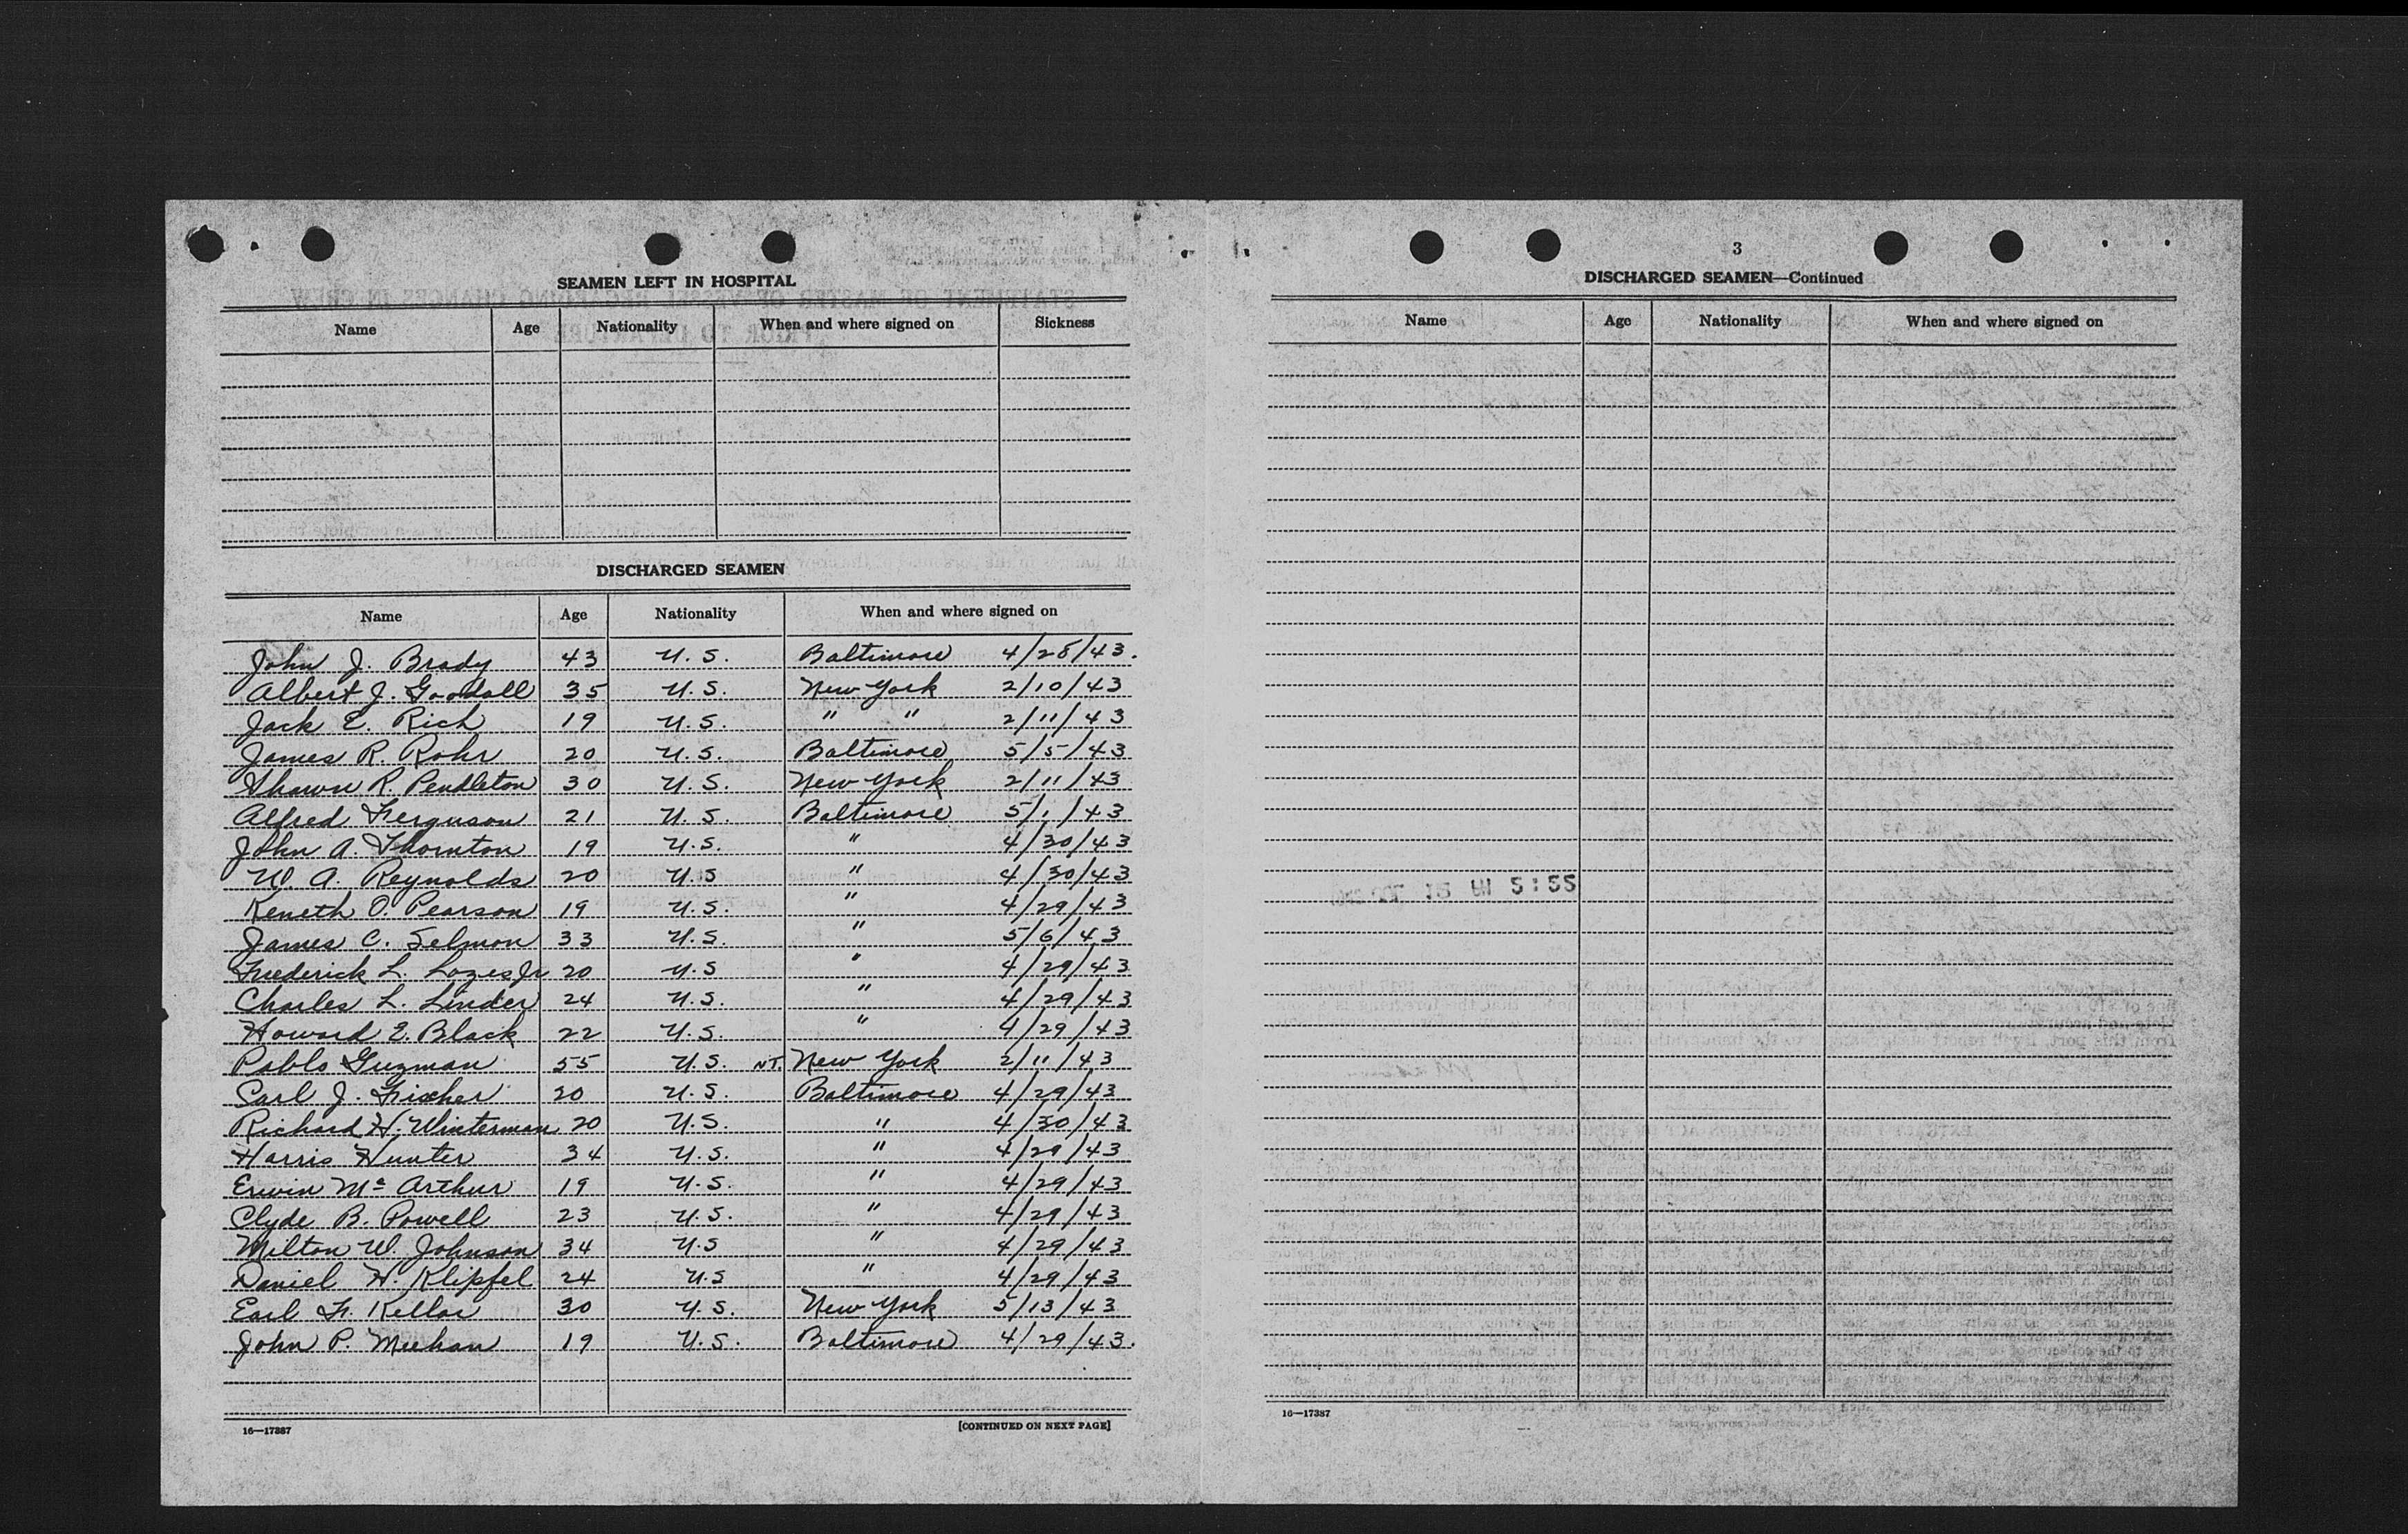 SEAMEN LEFT IN HOSPITAL
Name Age Nationality When and where signed on Sickness
DISCHARGED SEAMEN
Name Age Nationality When and where signed on
John J. Brady 43 U. S. Baltimore 4/28/43.
Albert J. Goodall 35 U. S. New York 2/10/43
Jack E. Rich 19 U. S. " " 2/11/43
James R. Rohr 20 U. S. Baltimore 5/5/43
Shawn R. Pendleton 30 U. S. New York 2/11/43
Alfred Ferguson 21 U. S. Baltimore 5/1/43
John A. Thornton 19 U. S. " 4/30/43
W. A. Reynolds 20 U. S " 4/30/43
Keneth O. Pearson 19 U. S. " 4/29/43
James C. Selmon 33 U. S. " 5/6/43
Frederick L. Lozes Jr 20 U. S " 4/29/43
Charles L. Linder 24 U. S. " 4/29/43
Howard E. Black 22 U. S. " 4/29/43
Pablo Guzman 55 U. S. NT. New York 2/11/43
Carl J. Fischer 20 U. S. Baltimore 4/29/43
Richard H. Winterman 20 U. S. " 4/30/43
Harris Hunter 34 U. S. " 4/29/43
Erwin Mc Arthur 19 U. S. " 4/29/43
Clyde B. Powell 23 U. S. " 4/29/43
Milton W. Johnson 34 U. S " 4/29/43
Daniel H. Klipfel 24 U. S " 4/29/43
Earl F. Kellar 30 U. S. New York 5/13/43
John P. Meehan 19 U. S. Baltimore 4/29/43.
16—17387 [CONTINUED ON NEXT PAGE]
3
DISCHARGED SEAMEN—Continued
Name Age Nationality When and where signed on
16—17387